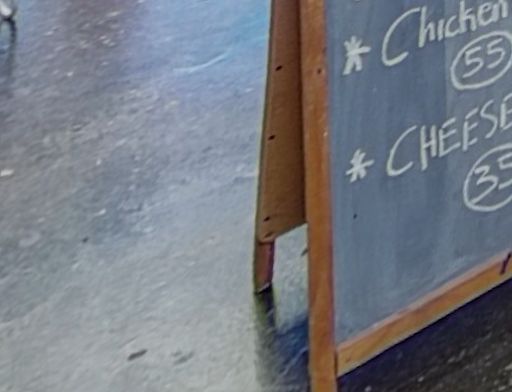 * Chicken
55
* CHEESE
35